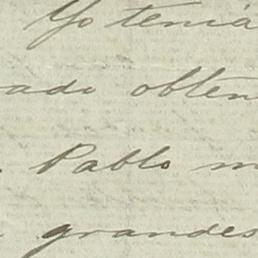 Yo tenia
ado obten
Pablo m
grandes